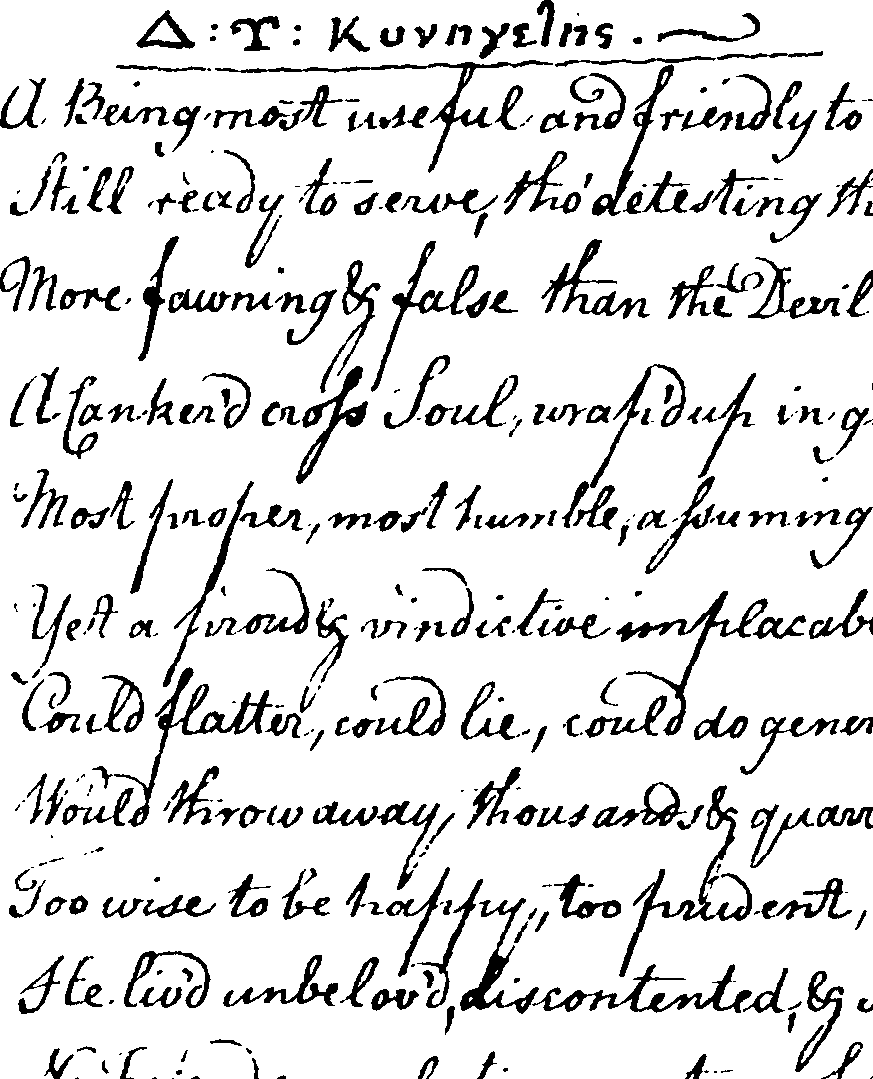 Δ : Υ : Κυνηγέτης .
A Being most useful and friendly to
Still ready to serve, tho' detesting th
More fawning & false than the Devil
A Canker'd cross Soul, wrap'd up in g
Most proper, most humble, assuming
Yet a proud & vindictive implacab
Could flatter, could lie, could do gener
Would throw away thousands & quarr
Too wise to be happy, too prudent,
He liv'd unbelov'd, discontented, &